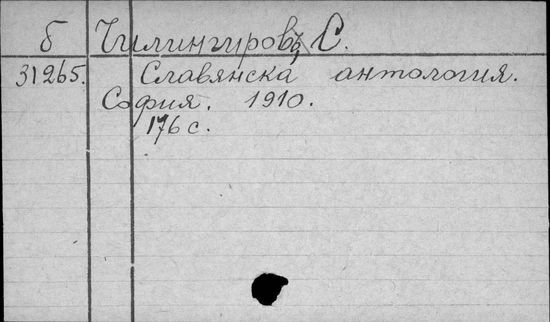 б Чилингировъ, С.
31265. Славянска антология.
София. 1910.
176 с.